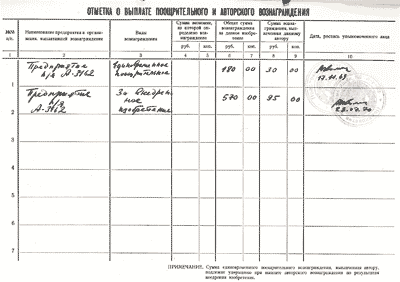 ОТМЕТКА О ВЫПЛАТЕ ПООЩРИТЕЛЬНОГО И АВТОРСКОГО ВОЗНАГРАЖДЕНИЯ
№№ п/п. Наименование предприятия и организации, выплатившей вознаграждение Виды вознаграждения Сумма экономии, из которой определено вознаграждение Общая сумма вознаграждения за данное изобретение Сумма вознаграждения, выплаченная данному автору Дата, роспись уполномоченного лица
руб. коп. руб. коп. руб. коп.
1 2 3 4 5 6 7 8 9 10
1 Предприятие п/я А-3162 Единовременное поощрительное 180 00 30 00
2 Предприятие п/я А-3162 За внедренное изобретение 570 00 95 00
3
4
5
6
7
ПРИМЕЧАНИЕ. Сумма единовременного поощрительного вознаграждения, выплаченная автору,
подлежит удержанию при выплате авторского вознаграждения по результатам
внедрения изобретения.